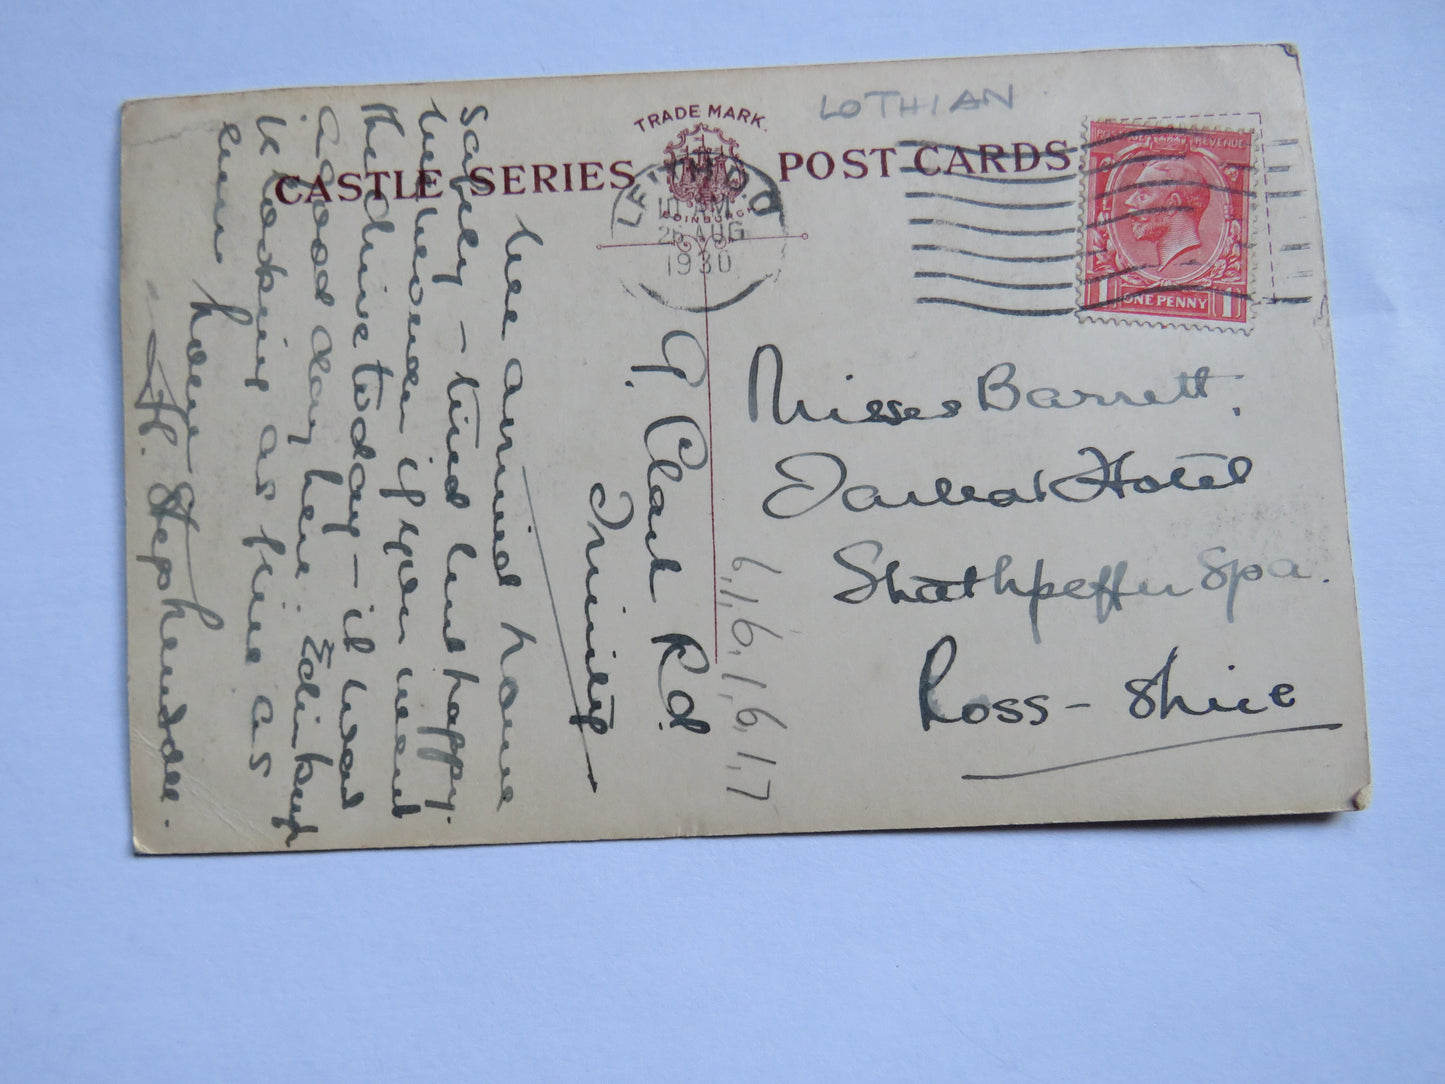 LOTHIAN
TRADE MARK.
CASTLE SERIES POST CARDS
EDINBURGH
LEITH M.O.
10 AM
26 AUG
1930
POSTAGE REVENUE
1 ONE PENNY 1
9. Clark Rd.
Trinity
We arrived home
safely – tired but happy.
We wonder if you went
the drive today – it was
a good day here. Edinburgh
is looking as fine as
ever
love
H. Stephendee.
Misses Barrett,
Hotel
Strathpeffer Spa.
Ross-Shire
6,1,6,1,6,1,7